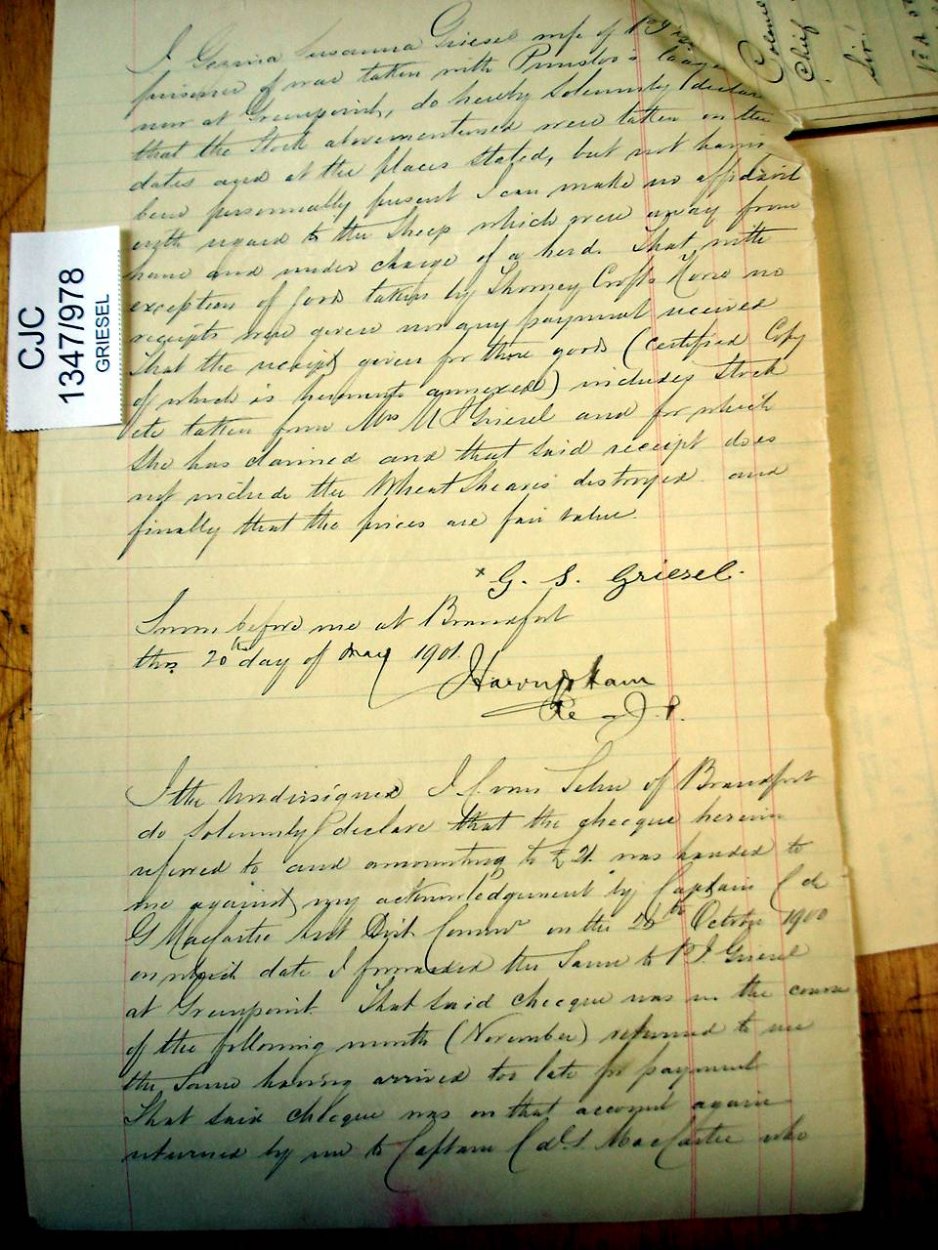 I Gesina Susanna Griesel wife of P J
prisoner of war taken with Prinsloo's laager
now at Greenpoint, do hereby Solemnly declare
that the Stock abovementioned were taken on the
dates and at the places stated, but not having
been personally present I can make no affidavit
with regard to the Sheep which were away from
home and under charge of a herd. That with
exception of goods taken by Thorney Crofts Horse no
receipts were given nor any payment received
That the receipt given for those goods (certified Copy
of which is hereunto annexed) includes Stock
etc taken from Mrs M J Griesel and for which
she has claimed and that said receipt does
not include the Wheat Sheaves destroyed and
finally that the prices are fair value.
x G. S. Griesel.
Sworn before me at Brandfort
this 20th day of May 1901.
J.P.
I the Undersigned J. J. van of Brandfort
do Solemnly declare that the checque herein
referred to and amounting to £21 was handed to
me against my acknowledgement by Captain C de
G MacCartie Asst Dist Commr on the 26th October 1900
on which date I forwarded the Same to P J Griesel
at Greenpoint. That said checque was in the course
of the following month (November) returned to me
the Same having arrived too late for payment
That said checque was on that account again
returned by me to Captain C de G MacCartie who
CJC
1347/978
GRIESEL
Colonel
Chief
Sir!